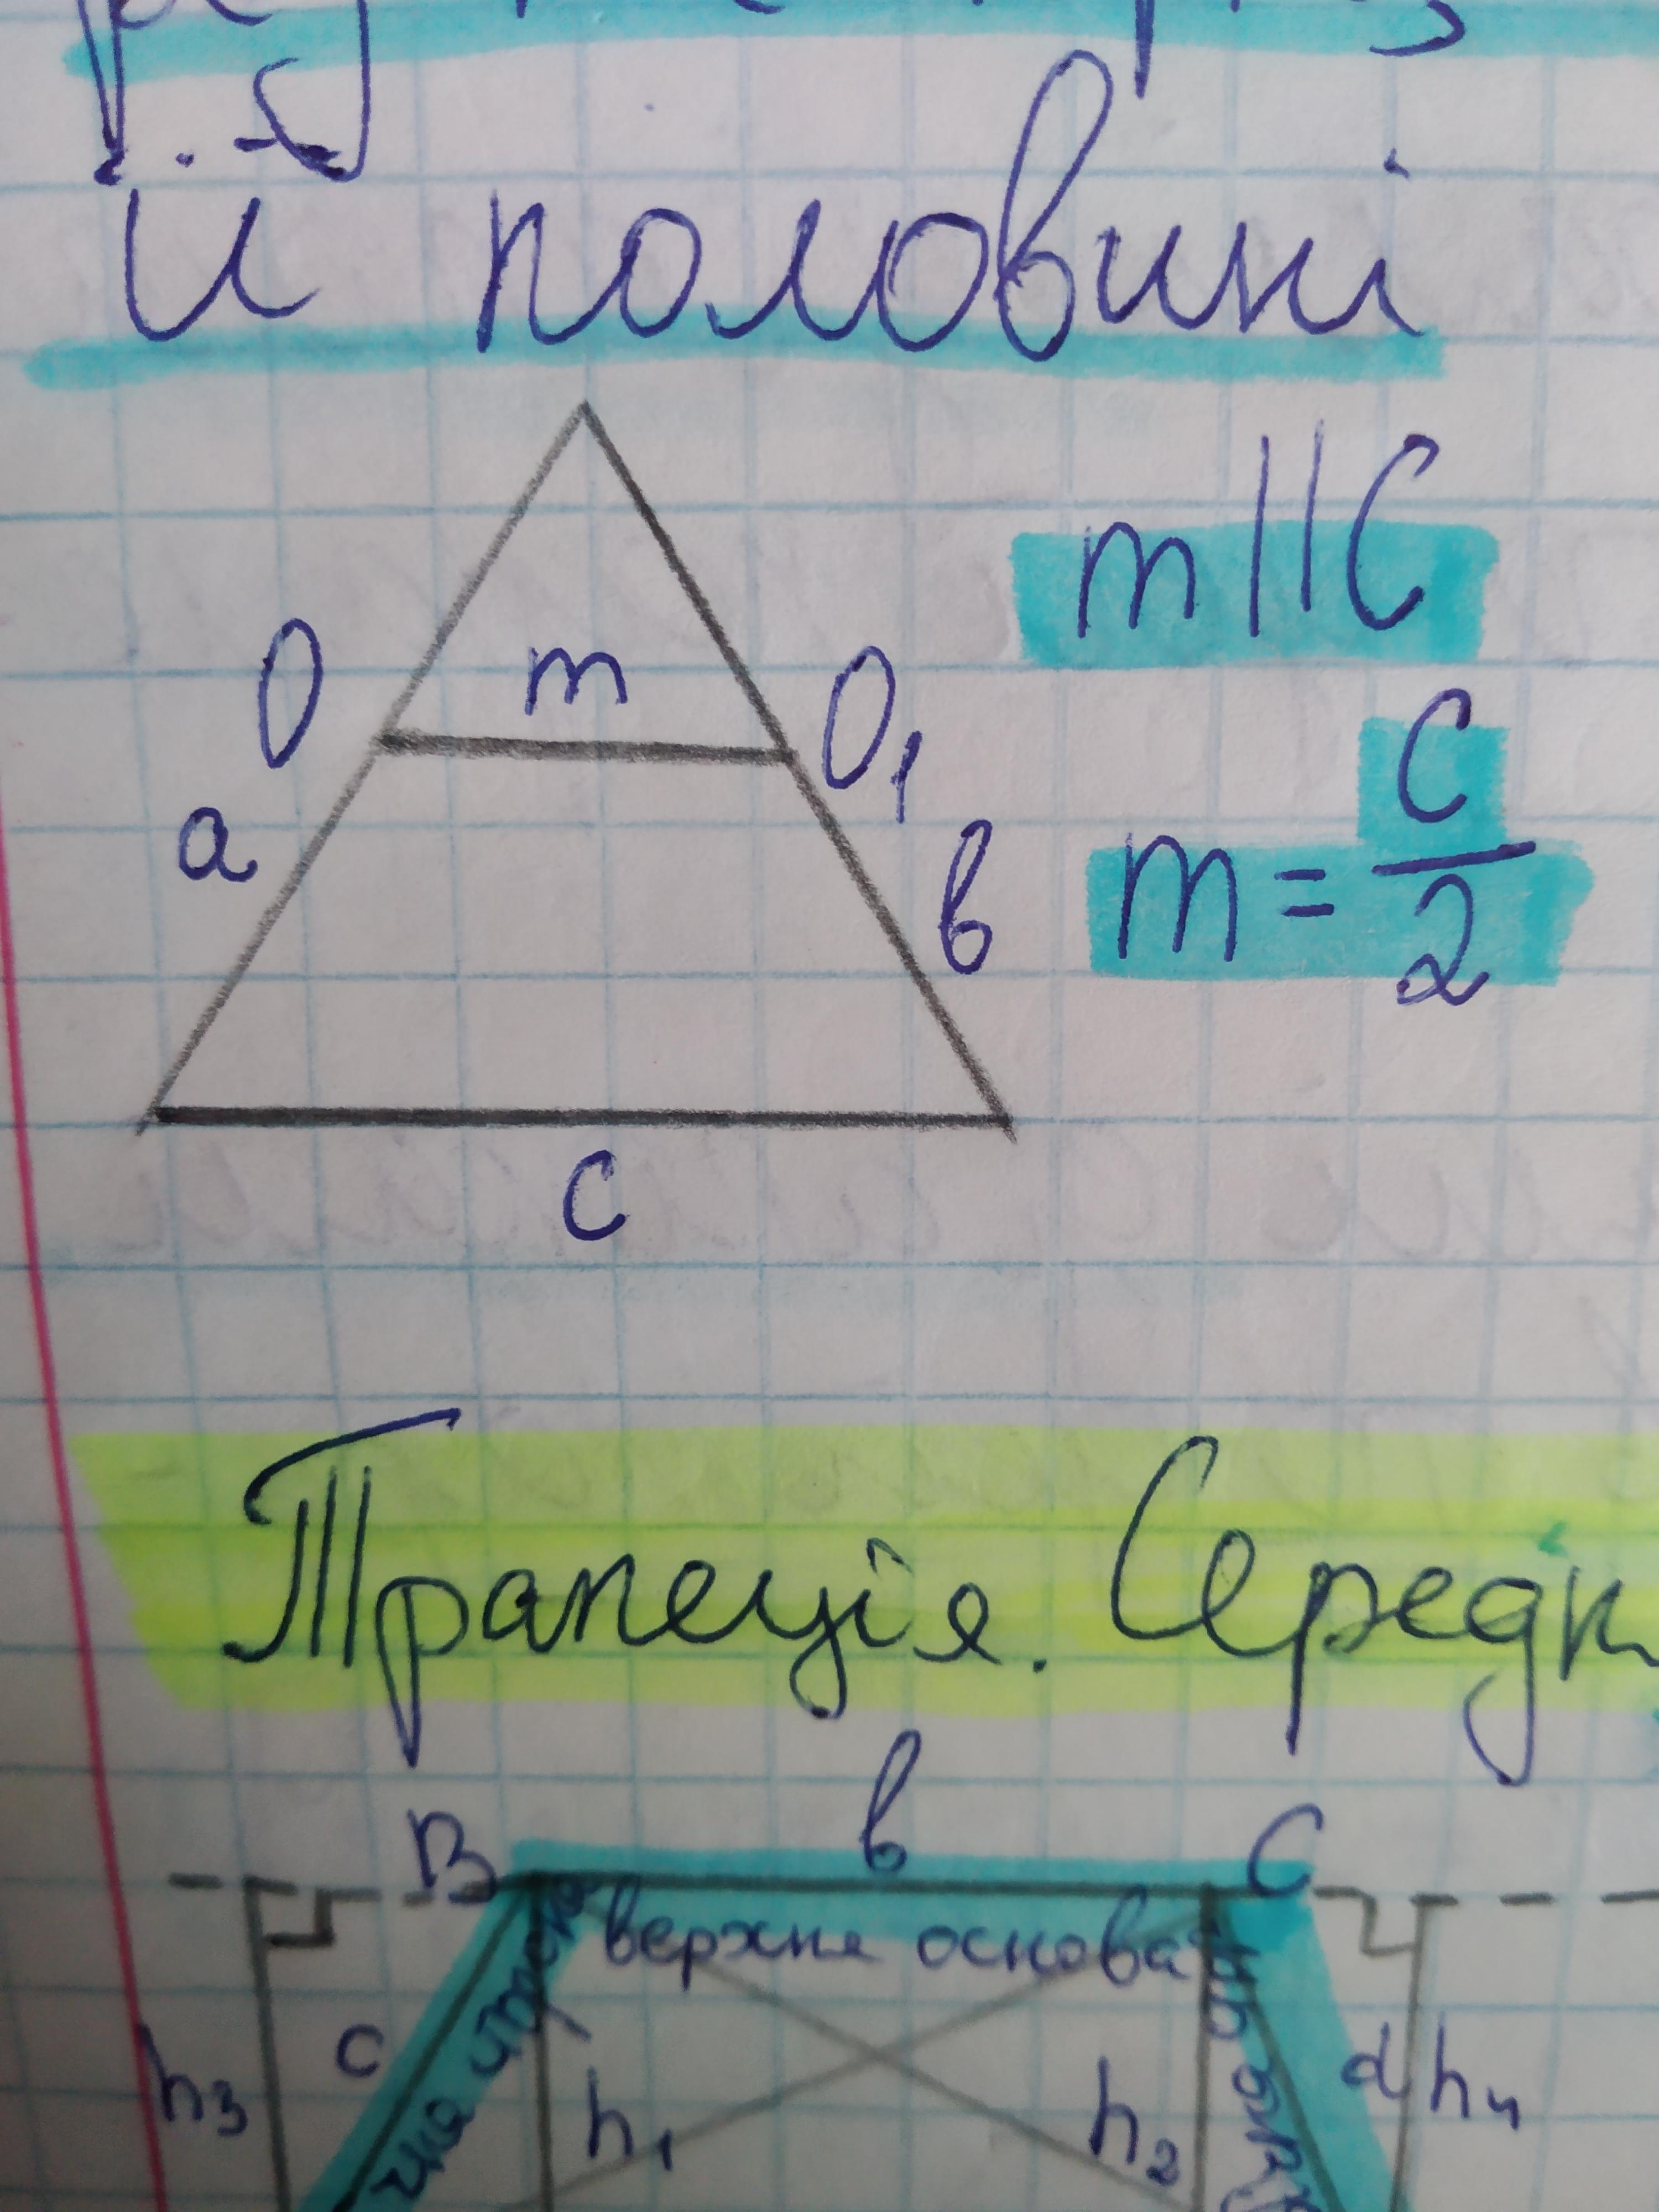 її половині
m||C
O m O₁
m = C/2
a
в
c
Трапеція. Середн
B в C
верхня основа
c d
h₃ h₁ h₂ h₄